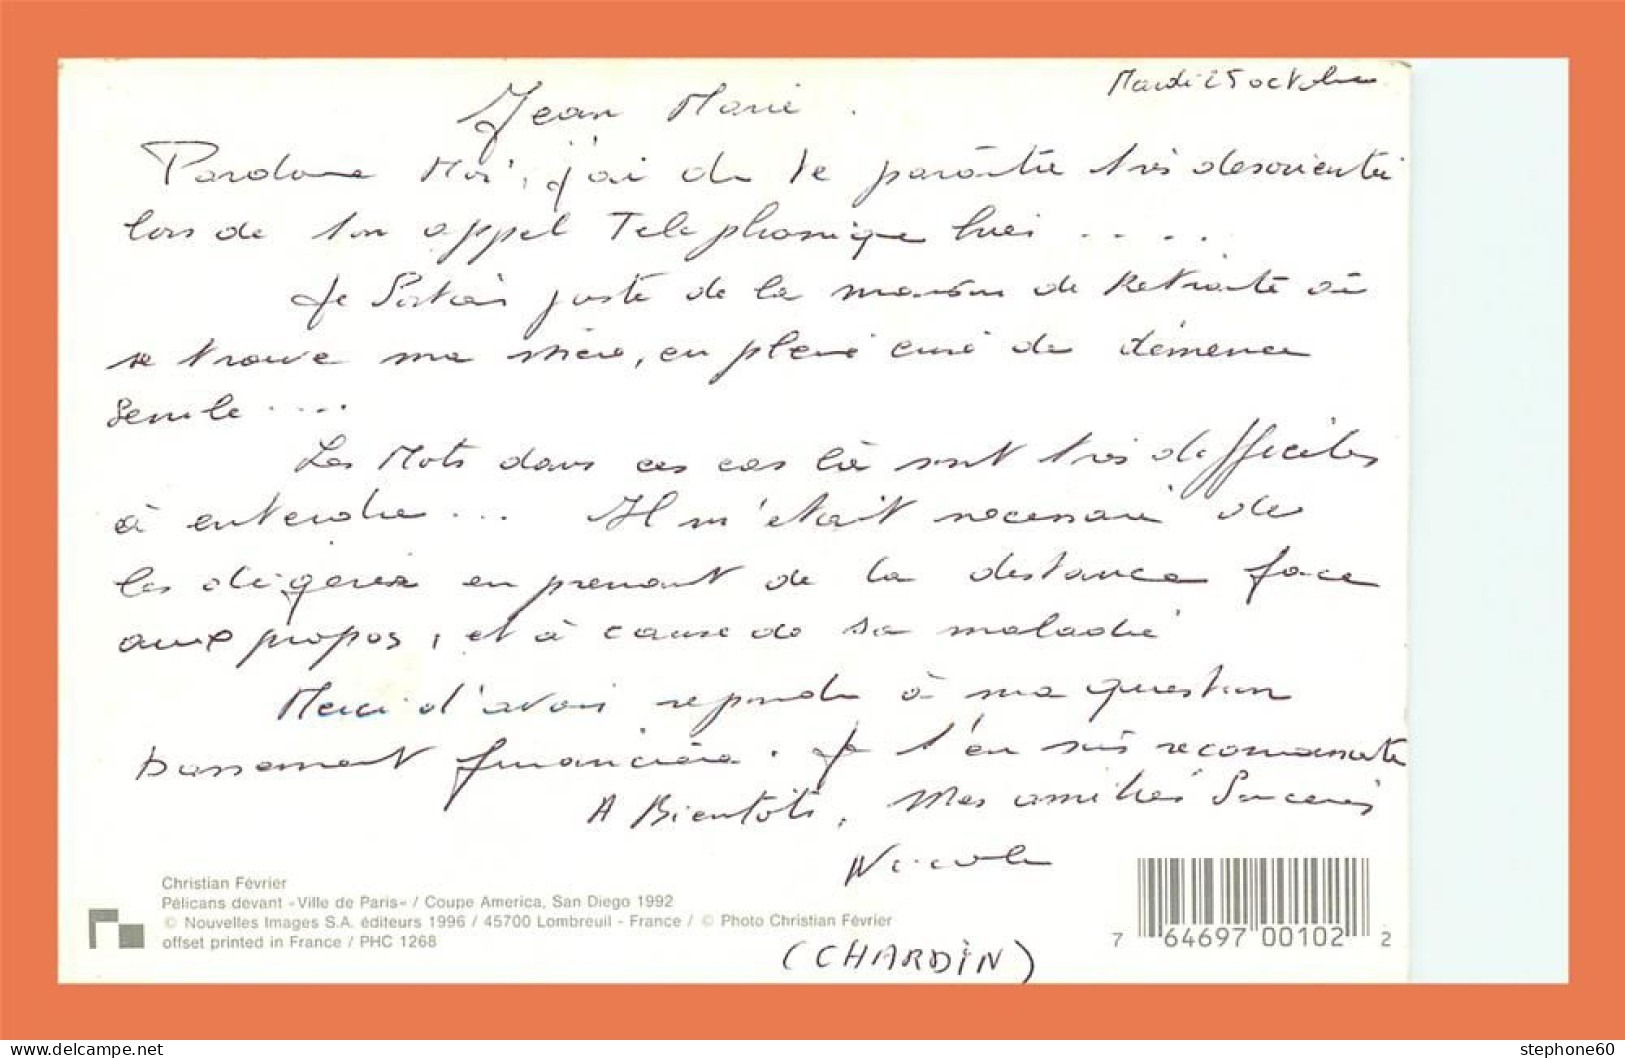 Mardi 25 octobre
Jean Marie.
Pardonne Moi, j'ai du te paraître très desorientée
lors de ton appel Telephonique hier ....
Je Sortais juste de la maison de Retraite où
se trouve ma mère, en pleine crise de démence
senile ....
Les Mots dans ces cas là sont très difficiles
à entendre ... Il m'etait necessaire de
les digerer en prenant de la distance face
aux propos, et à cause de sa maladie
Merci d'avoir repondu à ma question
bassement financière. Je t'en suis reconnaissante
A Bientôt, Mes amitiés Sincères
Nicole
Christian Février
Pélicans devant «Ville de Paris» / Coupe America, San Diego 1992
© Nouvelles Images S.A. éditeurs 1996 / 45700 Lombreuil - France / © Photo Christian Février
offset printed in France / PHC 1268
7 64697 00102 2
(CHARDIN)
stephone60
the-collection.delcampe.net